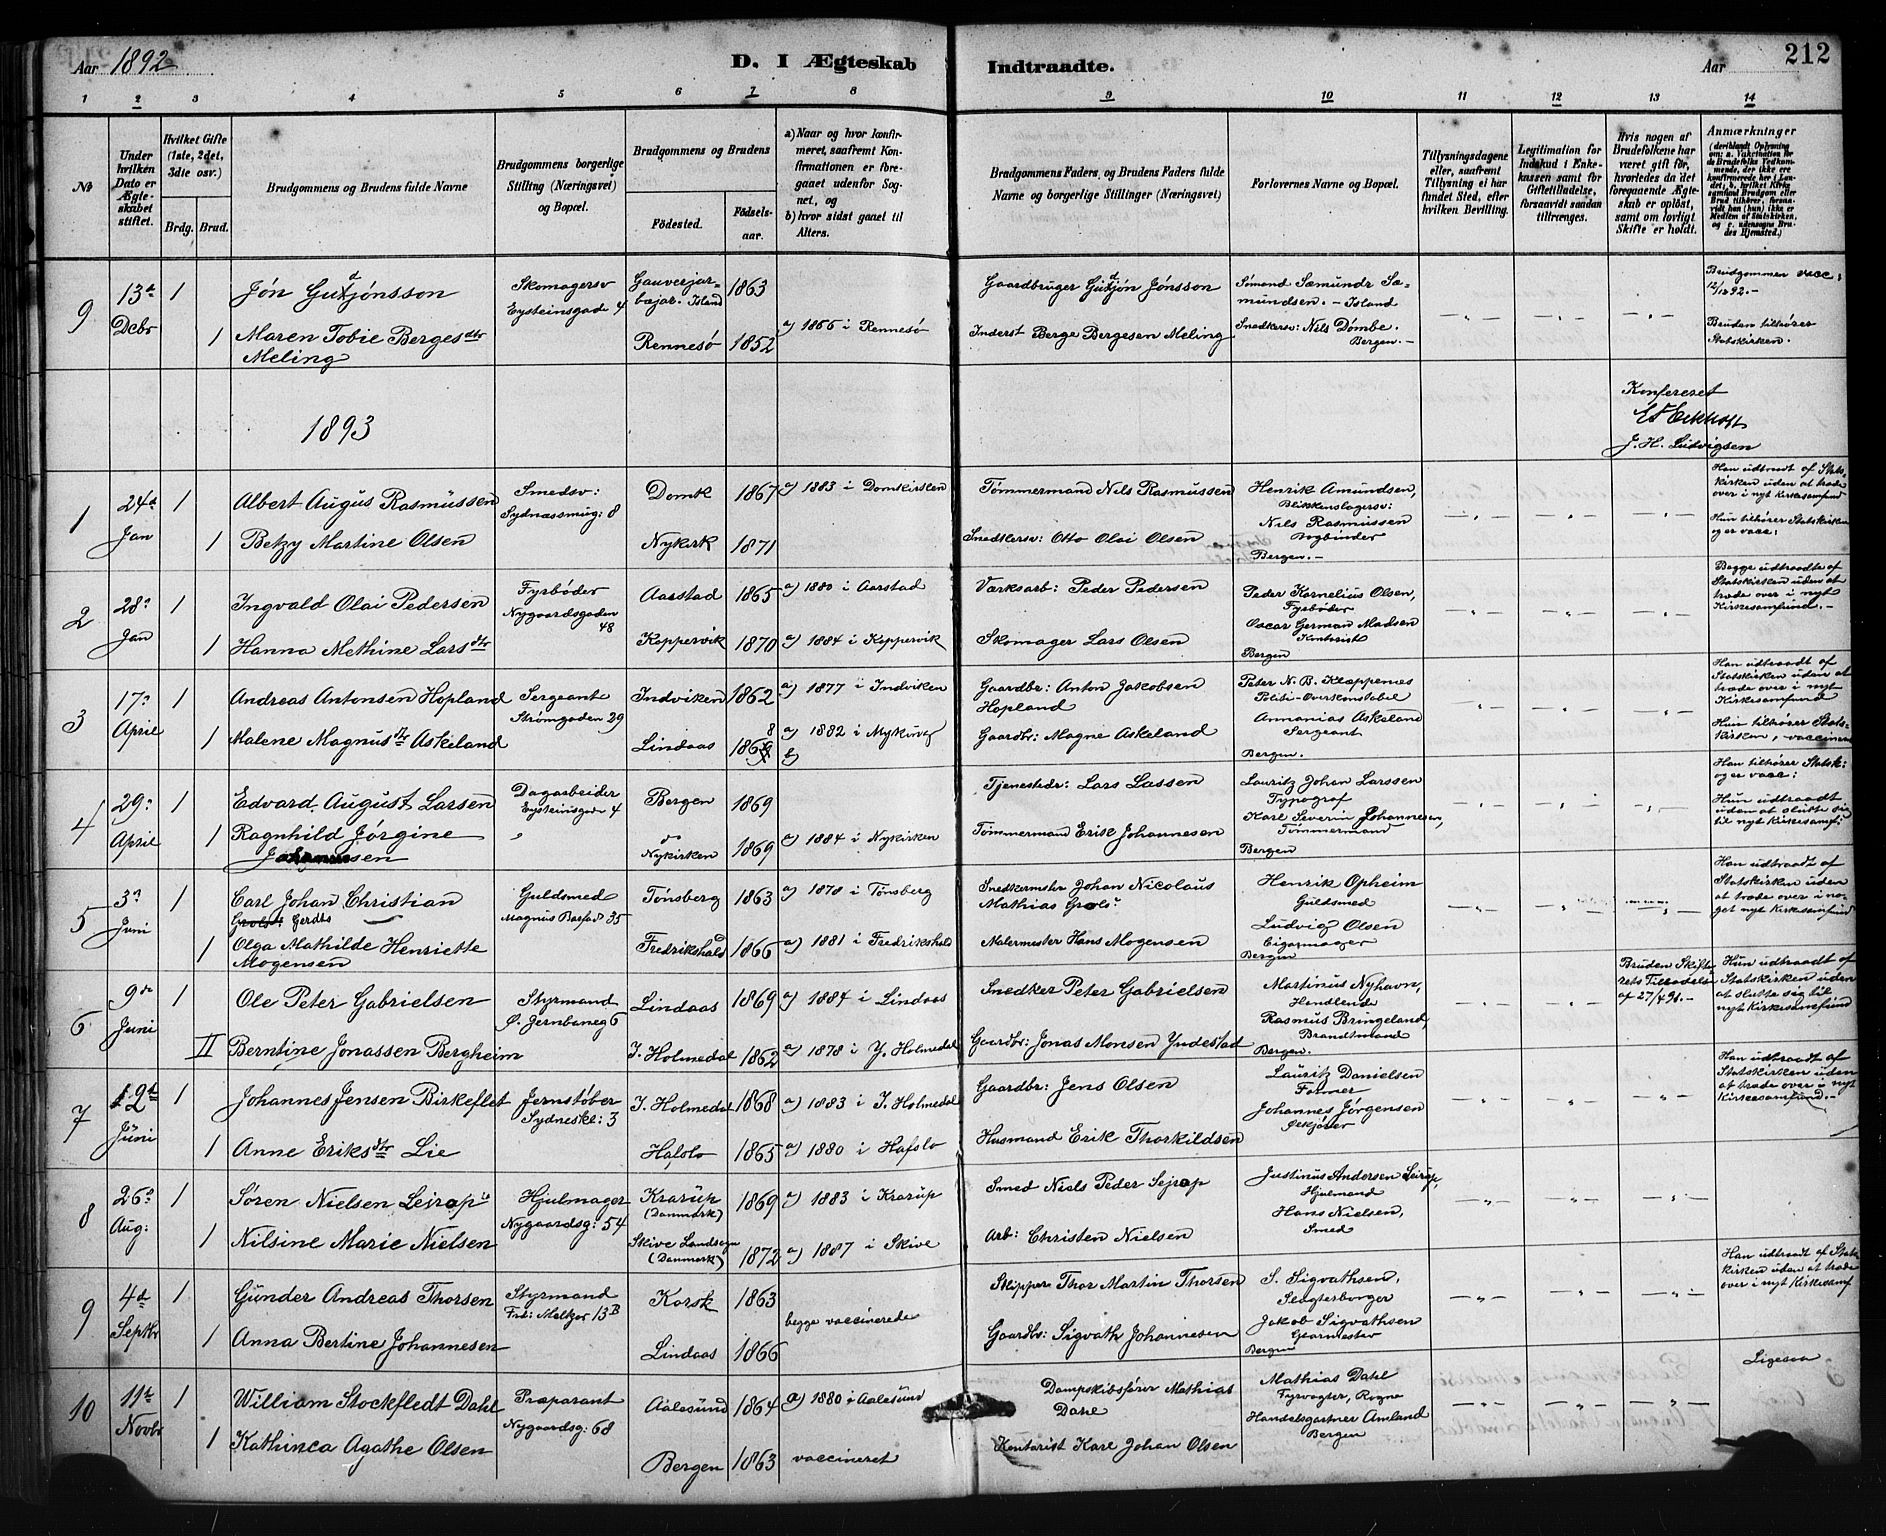 Aar 1892
D. I Ægteskab Indtraadte.
Aar
212
1 2 3 4 5 6 7 8 9 10 11 12 13 14
№
Under hvilken Dato er Ægteskabet stiftet.
Hvilket Gifte (1ste, 2det, 3dte osv.)
Brdg. Brud.
Brudgommens og Brudens fulde Navne
Brudgommens borgerlige Stilling (Næringsvei) og Bopæl.
Brudgommens og Brudens
Fødested. Fødselsaar.
a) Naar og hvor konfirmeret, saafremt Konfirmationen er foregaaet udenfor Sognet, og
b) hvor sidst ganet til Alters.
Brudgommens Faders, og Brudens Faders fulde Navne og borgerlige Stillinger (Næringsvei)
Forlovernes Navne og Bopæl.
Tillysningsdagene eller, saafremt Tillysning ei har fundet Sted, efter hvilken Bevilling.
Legitimation for Indskud i Enkekassen samt for Giftetilladelse, forsaavidt saadan tiltrænges.
Hvis nogen af Brudefolkene har været gift før, hvorledes da det foregaaende Ægteskab er opløst, samt om lovligt Skifte er holdt.
Anmærkninger
9 13de Decbr 1 Jón Gudjónsson Skomagersv Eysteinsgade 4 Gauverjarbæjar. Island 1863 Gaardbruger Gudjón Jónsson Simond Sæmundr Sæmundsen. - Island Brudgommen vacc: 12/12 92.-
1 Maren Tobie Bergesdtr Meling Rennesö 1852 a) 1866 i Rennesö Inderst Berge Bergesen Meling Snedkersv: Nils Dombe. Bergen.- Bruden tilhører Statskirken.
1893
Konfereret
J. H. Ludvigsen
1 24de Jan 1 Albert Augus Rasmussen Smedsv: Sydnæssmug: 8 Domk 1867 a) 1883 i Domkirken Tømmermand Nils Rasmussen Henrik Amundsen, Blikkenslagersv: Han udtraadt af Statskirken uden at træde over i nyt Kirkesamfund
1 Betzy Martine Olsen Nykirk 1871 Snedkersv: Otto Olai Olsen Nils Rasmussen Bogbinder Bergen.- Hun tilhører Statskirken og er vacc:
2 28de Jan 1 Ingvald Olai Pedersen Fyrbøder Nygaardsgaden 48 Aarstad 1865 a) 1880 i Aarstad Værksarb: Peder Pedersen Peder Kornelius Olsen, Fyrbøder Begge udtraadte af Statskirken uden at træde over i nyt Kirkesamfund.-
1 Hanna Methine Larsdtr Koppervik 1870 a) 1884 i Koppervik Skomager Lars Olsen Oscar German Madsen Kontorist Bergen
3 17de April 1 Andreas Antonsen Hopland Sergeante Strømgaden 29 Indviken 1862 a) 1877 i Indviken Gaardbr: Anton Jakobsen Hopland Peter N. B. Klappenes Politi-Overkonstabel Han udtraadt af Statskirken uden at træde over i nyt Kirkesamfund
1 Malene Magnusdtr Askeland Lindaas 1868 a) 1882 i b) Gaardbr: Magne Askeland Annanias Askeland Sergeant Bergen. Hun tilhører Statskirken, vaccineret
4 29de April 1 Edvard August Larsen Dagarbeider Eysteinsgade 4 Bergen 1869 Tjenestedr: Lars Lassen Lauritz Johan Larssen Typograf Han tilhører Statsk: og er vacc:
1 Ragnhild Jørgine Johannesen " Nykirken 1869 a) 1884 i Nykirken Tømmermand Erik Johannesen Karl Severin Johannesen, Tømmermand Bergen Hun udtraadt uden at slutte sig til nyt Kirkesamf:
5 3de Juni 1 Carl Johan Christian Gerdts Guldsmed Magnus Barfod 35 Tønsberg 1863 a) 1878 i Tønsberg Snedkermster Johan Nicolaus Mathias Henrik Opheim Guldsmed Han udtraadt af Statskirken uden at træde over i noget nyt Kirkesamfund
1 Olga Mathilde Henriette Mogensen Fredrikshald 1866 a) 1881 i Fredrikshald Malermester Hans Mogensen Ludvig Olsen Cigarmager Bergen
6 9de Juni 1 Ole Peter Gabrielsen Styrmand Ø. Jernbaneg 6 Lindaas 1869 a) 1884 i Lindaas Snedker Peter Gabrielsen Martinus Nyhavn, Handlende Bruden Skifterets Tilladelse af 27/4 91.- Hun udtraadt af Statskirken uden at slutte sig til nyt Kirkesamfund
II Berntine Jonassen Bergheim I. Holmedal 1862 a) 1878 i Y. Holmedal Gaardbr: Jonas Monsen Yndestad Rasmus Bringeland, Brandtmand Bergen.
7 12te Juni 1 Johannes Jensen Birkeflet Jernstøber Sydneskl: 3 I. Holmedal 1868 a) 1883 i I. Holmedal Gaardbr: Jens Olsen Lauritz Danielsen Former Han udtraadt af Statskirken uden at træde over i nyt Kirkesamfund.-
1 Anne Eriksdtr Lie Hafslo 1865 a) 1880 i Hafslo Husmand Erik Thorkildsen Johannes Jørgensen
8 26de Aug: 1 Søren Nielsen Leirop Hjulmager Nygaardsg: 54 Krarup (Danmark) 1869 a) 1883 i Krarup Smed Niels Peder Sejrop Justinus Andersen Seirup, Hjulmand
1 Nilsine Marie Nielsen Skive Landsogn (Danmark) 1872 a) 1887 i Skive Arb: Christen Nielsen Hans Nielsen, Smed
9 4de Septbr 1 Gunder Andreas Thorsen Styrmand Fr: Meltzer 13B Korsk 1863 begge vaccinerede Skipper Thor Martin Thorsen S. Sigvathsen, Slagterborger Han udtraadt af Statskirken uden at træde over i nyt Kirkesamf
1 Anna Bertine Johannesen Lindaas 1866 Gaardbr: Sigvath Johannesen Jakob Sigvathsen Garmester Bergen
10 11te Novbr 1 William Stockfledt Dahl Præparant Nygaardsg: 68 Aalesund 1864 a) 1880 i Aalesund Dampskibsfører Mathias Dahl Mathias Dahl Fyrvogter, Rogne Ligesaa
1 Kathinca Agathe Olsen Bergen 1863 vaccineret Kontorist Karl Johan Olsen Handelsgartner Amland Bergen